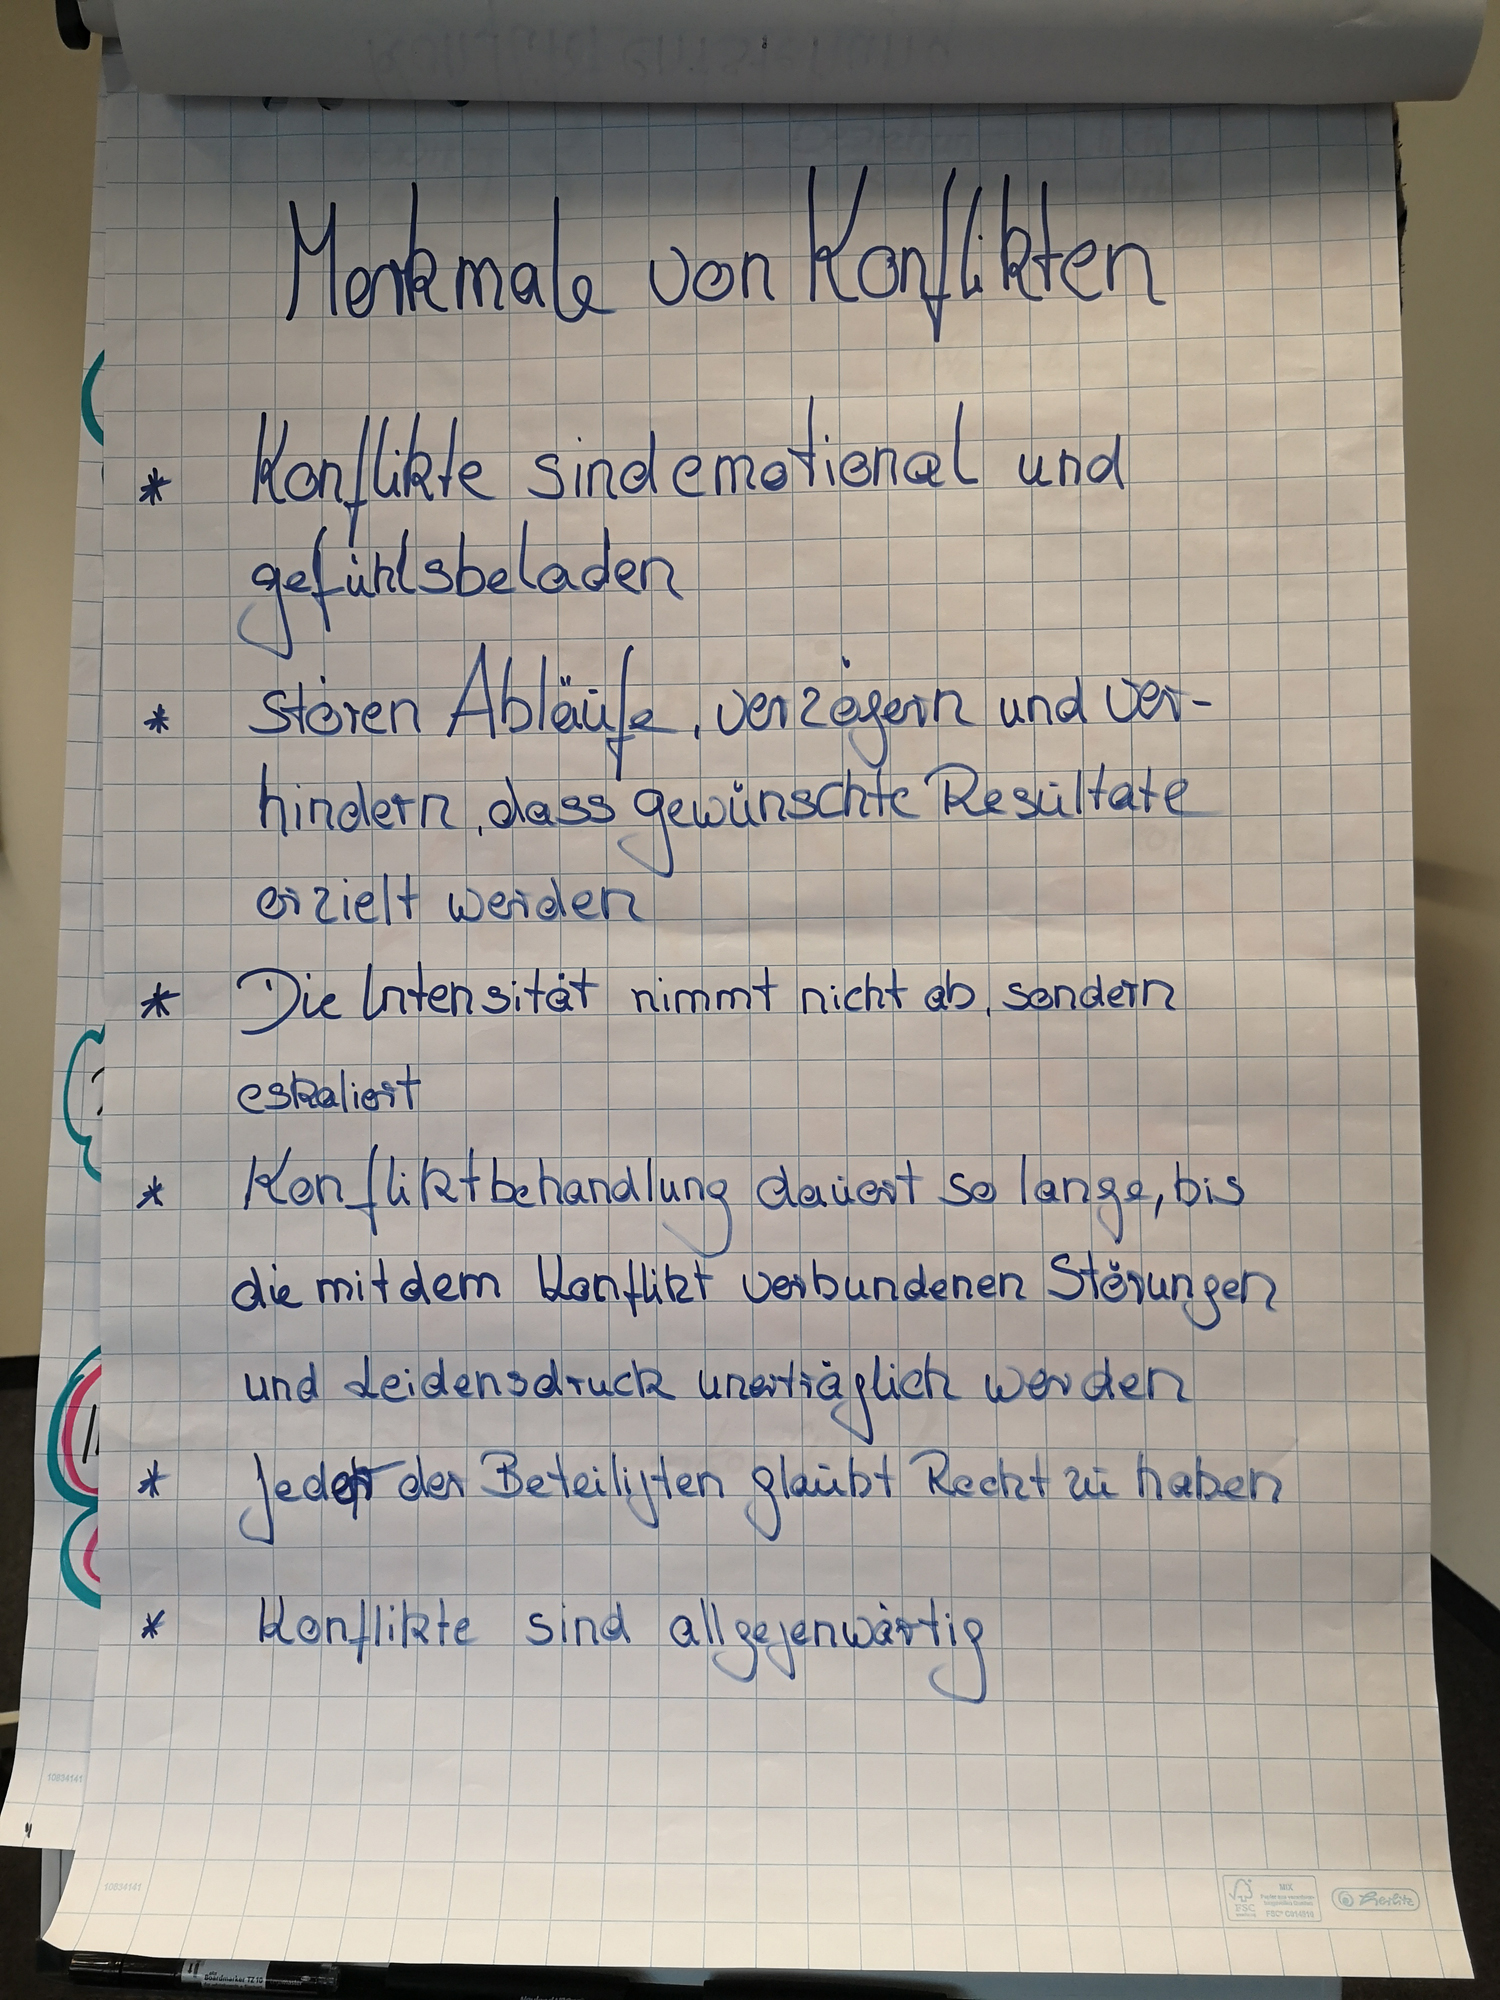 Merkmale von Konflikten
* Konflikte sind emotional und
gefühlsbeladen
* stören Abläufe, verzögern und ver-
hindern, dass gewünschte Resultate
erzielt werden
* Die Intensität nimmt nicht ab, sondern
eskaliert
* Konfliktbehandlung dauert so lange, bis
die mit dem Konflikt verbundenen Störungen
und Leidensdruck unerträglich werden
* Jeder der Beteiligten glaubt Recht zu haben
* Konflikte sind allgegenwärtig
10834141
10834141
FSC
MIX
FSC® C014919
Herlitz
Boardmarker TZ 10